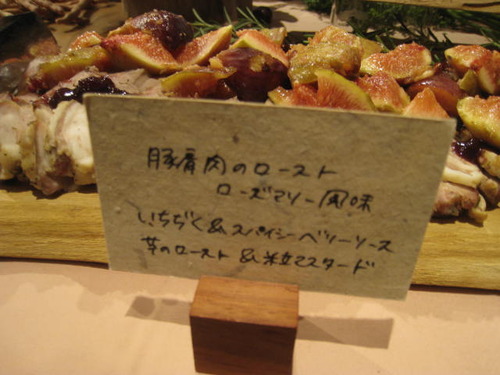 豚肩肉のロースト
ローズマリー風味
いちぢく&スパイシーベリーソース
芋のロースト&粒マスタード